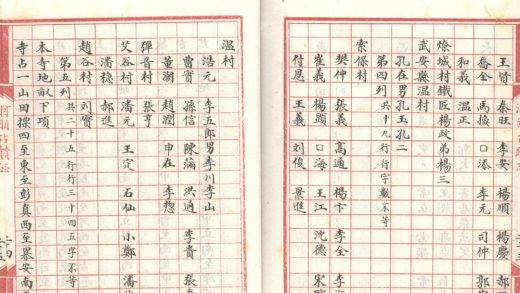 王 秦旺 李安 楊順 楊慶 郝
喬金 馬換 口添 李元 司仲 郭
和義 溫正
燎城村鐵匠楊政弟楊三
武安縣溫村
孔在男孔玉孔二
第四列 共十九行行字數不等
索保村
樊仲 張義 高通 楊卞 李全 李
崔義 楊顯 口海 王江 沈德 宋
付恩 王義 劉俊 景進
溫村
浩元 李五郎男李川李山
曹賓 孫信 陳滿 洪通 李貴 張
董潮 趙潤 申在 李惣
彈音村 張亨
艾谷村 潘元 王定 石仙 小鄭 潘
潘穩 郝進
趙谷村 劉寶
第五列 共二十五行行三十四五字不等
本寺地畝下項
寺占一山田摞四至東至彭真西至暴安南至